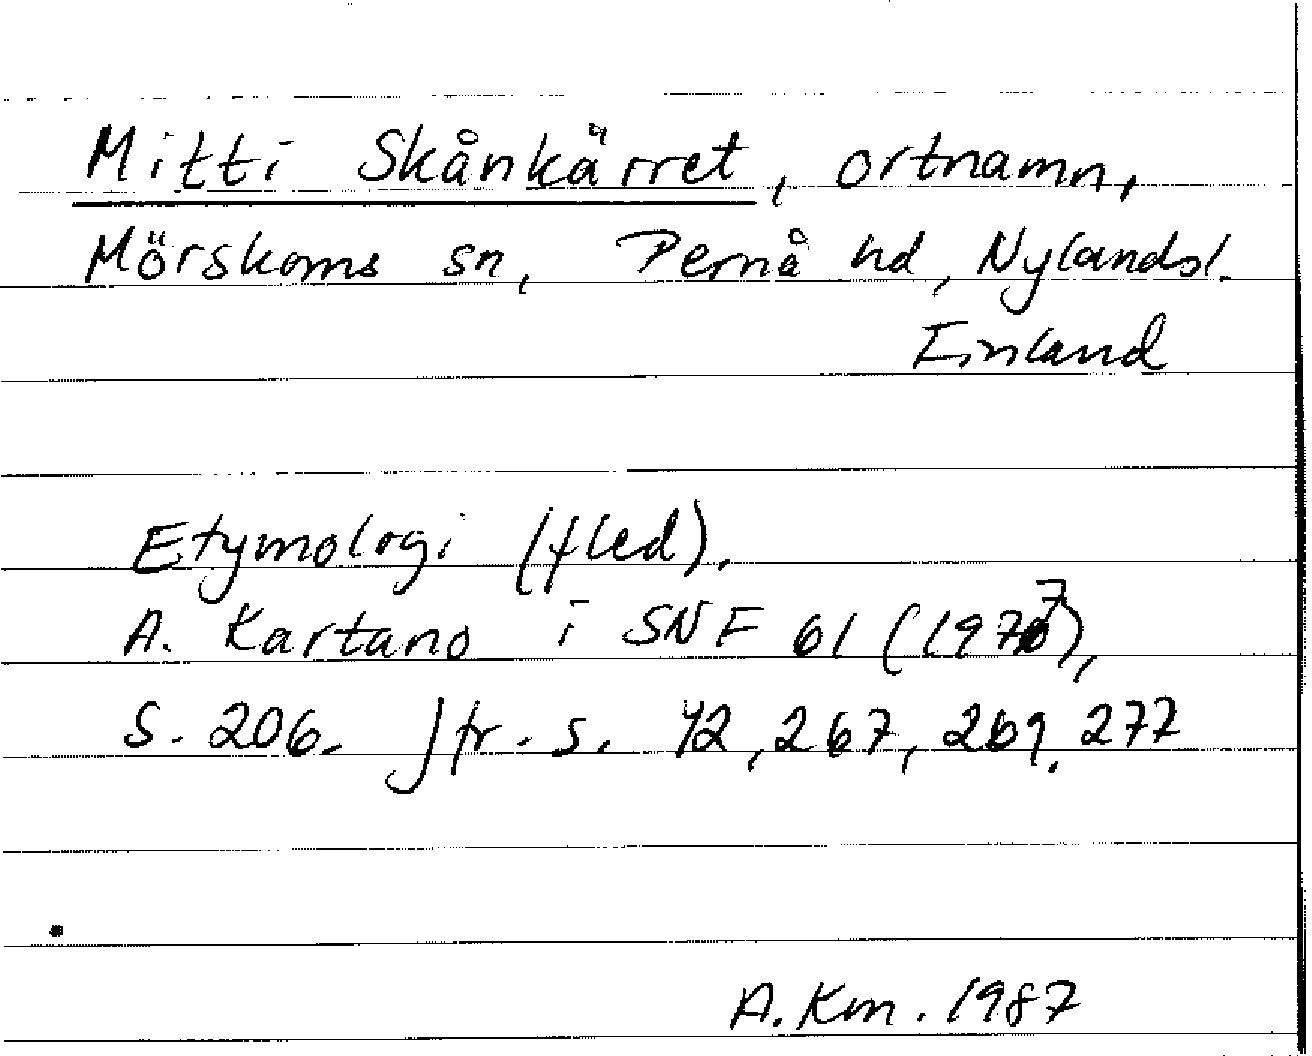 Mitti Skånkärret, ortnamn,
Mörskoms sn, Pernå hd, Nylandsl.
Finland
Etymologi (fled).
A. Kartano i SNF 61 (1977),
S. 206. Jfr. s. 42, 267, 269, 277
A. Km. 1987